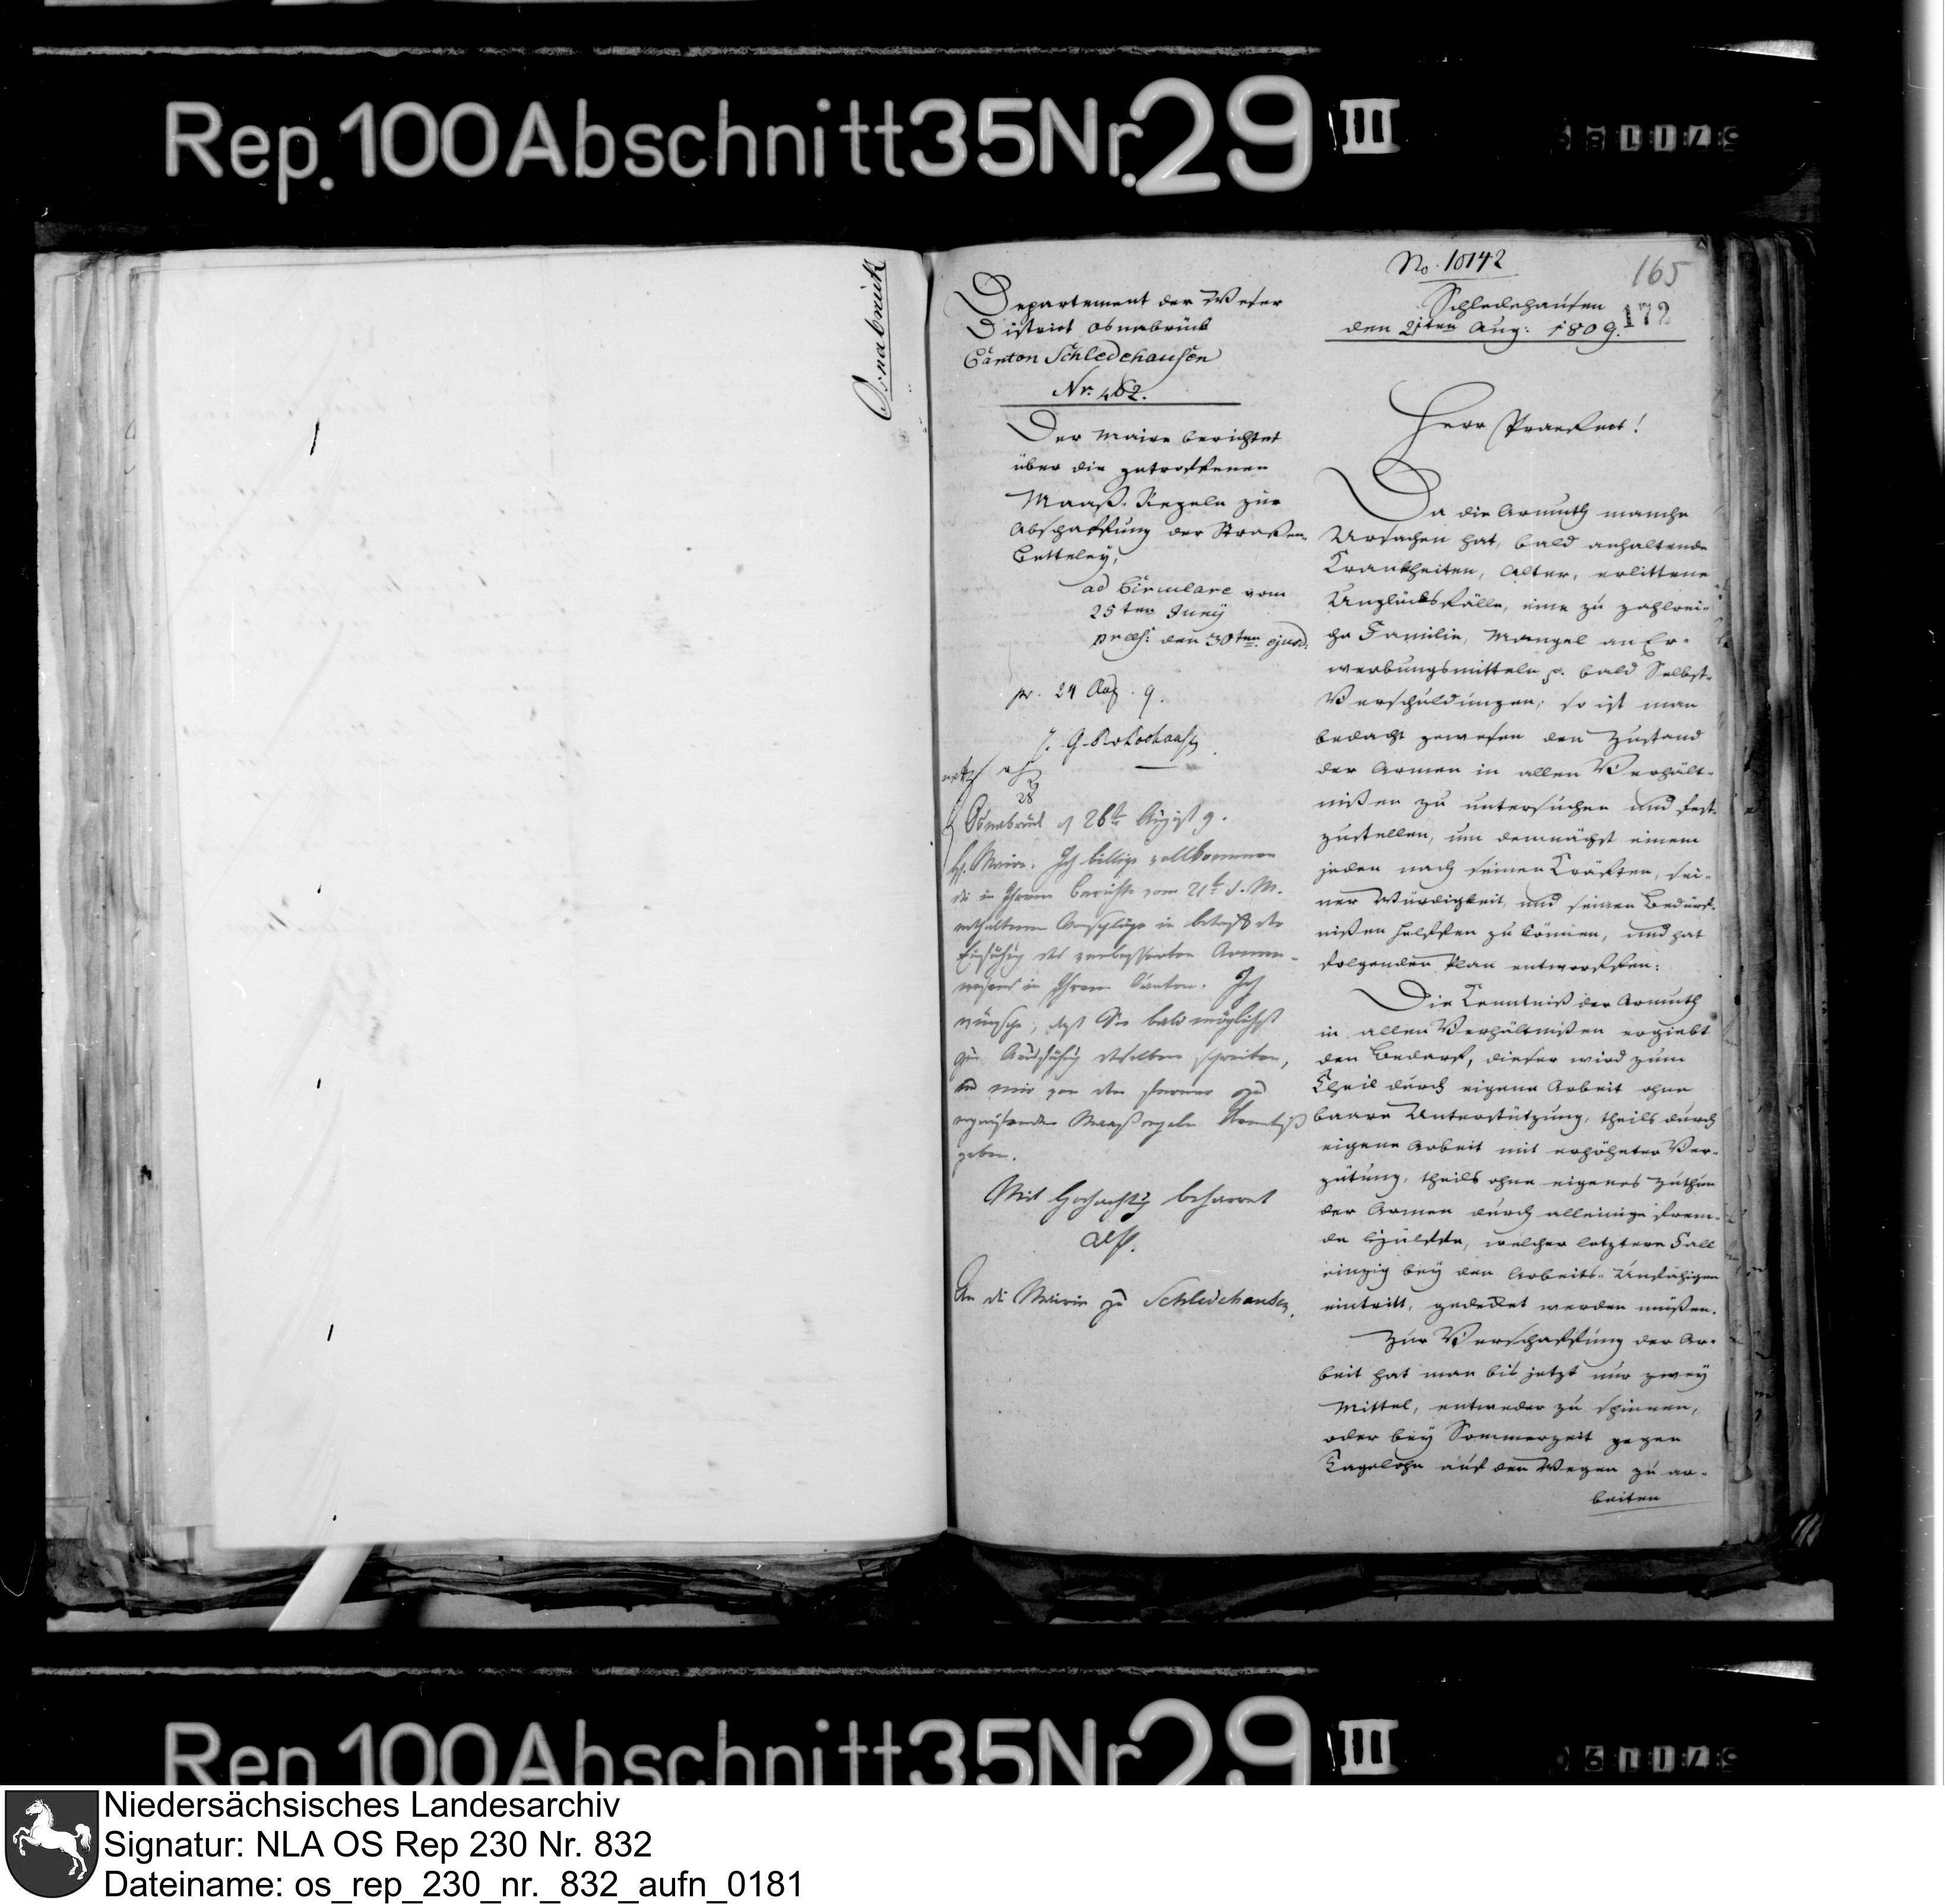 Rep. 100 Abschnitt 35 Nr. 29 III
Osnabrück
Departement der Weser
District Osnabrück
Canton Schledehausen
Nr. 462.
Der Maire berichtet
über die getroffenen
Maaß-Regeln zur
Abschaffung der Straßen-
Betteley,
ad Circulare vom
25ten Juny
præs: den 30ten ejusd.
pr. 24 Aug. 9.
Osnabrück d 26t August 9.
H. Maire. Ich billige vollkommen
die in Ihrem Berichte vom 21t d. M.
enthaltenen Vorschläge in betreff der
Einführung des verbesserten Armen-
wesens in Ihrem Canton. Ich
wünsche, daß Sie bald möglichst
zur Ausführung derselben schreiten,
und mir von den ferner zu
ergreifenden Maaßregeln Kenntniß
geben.
Mit Hochachtung beharret
An die Mairie zu Schledehausen.
No. 10142
165
172
Schledehausen
den 21ten Aug: 1809.
Herr Praefect!
Da die Armuth manche
Ursachen hat, bald anhaltende
Krankheiten, Alter, erlittene
Unglücksfälle, eine zu zahlrei-
che Familie, Mangel an Er-
werbungsmitteln p. bald Selbst-
Verschuldungen; so ist man
bedacht gewesen den Zustand
der Armen in allen Verhält-
nißen zu untersuchen und fest-
zustellen, um demnächst einem
jeden nach seinen Kräften, sei-
ner Würdigkeit, und seinen Bedürf-
nißen helffen zu können, und hat
folgenden Plan entworffen:
Die Kenntniß der Armuth
in allen Verhältnißen ergiebt
den Bedarf, dieser wird zum
Theil durch eigene Arbeit ohne
baare Unterstützung, theils durch
eigene Arbeit mit erhöheter Ver-
gütung, theils ohne eigenes Zuthun
der Armen durch alleinige frem-
de Hülffe, welcher letztere Fall
einzig bey den Arbeits-Unfähigen
eintritt, gedecket werden müßen.
Zur Verschaffung der Ar-
beit hat man bis jetzt nur zwey
Mittel, entweder zu spinnen,
oder bey Sommerzeit gegen
Tagelohn auf den Wegen zu ar-
beiten
Rep. 100 Abschnitt 35 Nr. 29 III
Niedersächsisches Landesarchiv
Signatur: NLA OS Rep 230 Nr. 832
Dateiname: os_rep_230_nr._832_aufn_0181